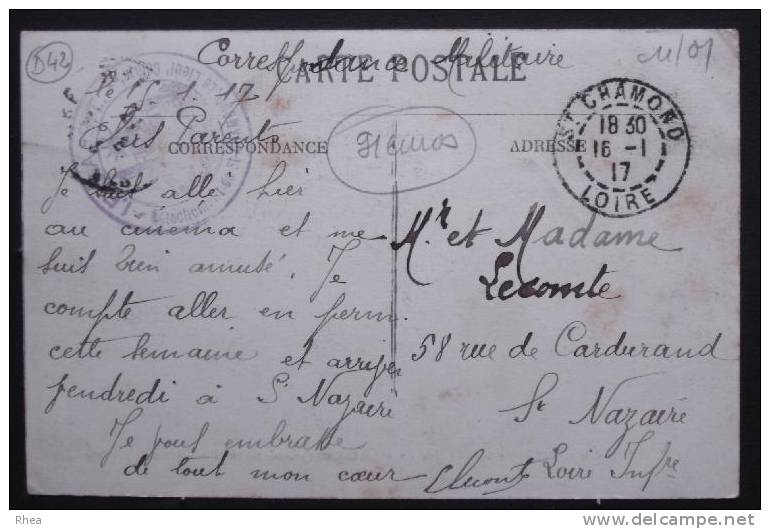 D42
Correspondance Militaire
11/01
CARTE POSTALE
le 15.1.17
Chers Parents
CORRESPONDANCE
ADRESSE
ST CHAMOND
18 30
16 -1
17
LOIRE
Je suis allé hier
au cinema et me
suis bien amusé. Je
compte aller en perm.
cette semaine et arriver
vendredi à St Nazaire
Je vous embrasse
de tout mon cœur
Lecomte
Mr et Madame
Lecomte
58 rue de Cardurand
St Nazaire
Loire Infre
Rhea
www.delcampe.net